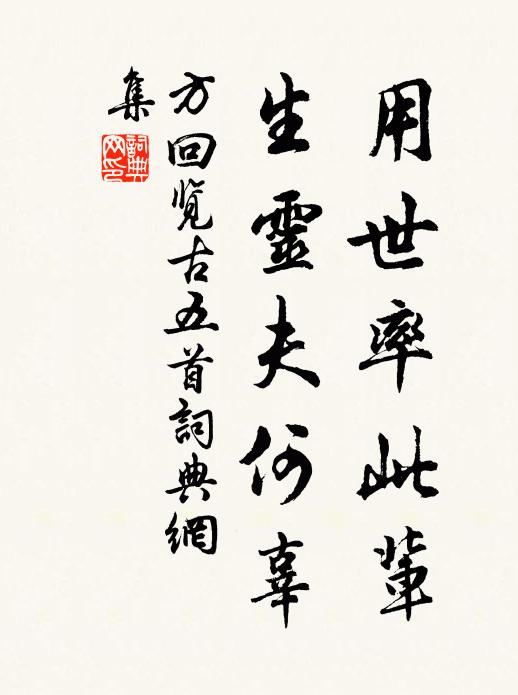 用世率此輩
生靈夫何辜
方回覽古五首詞典網
集
詞典
网印